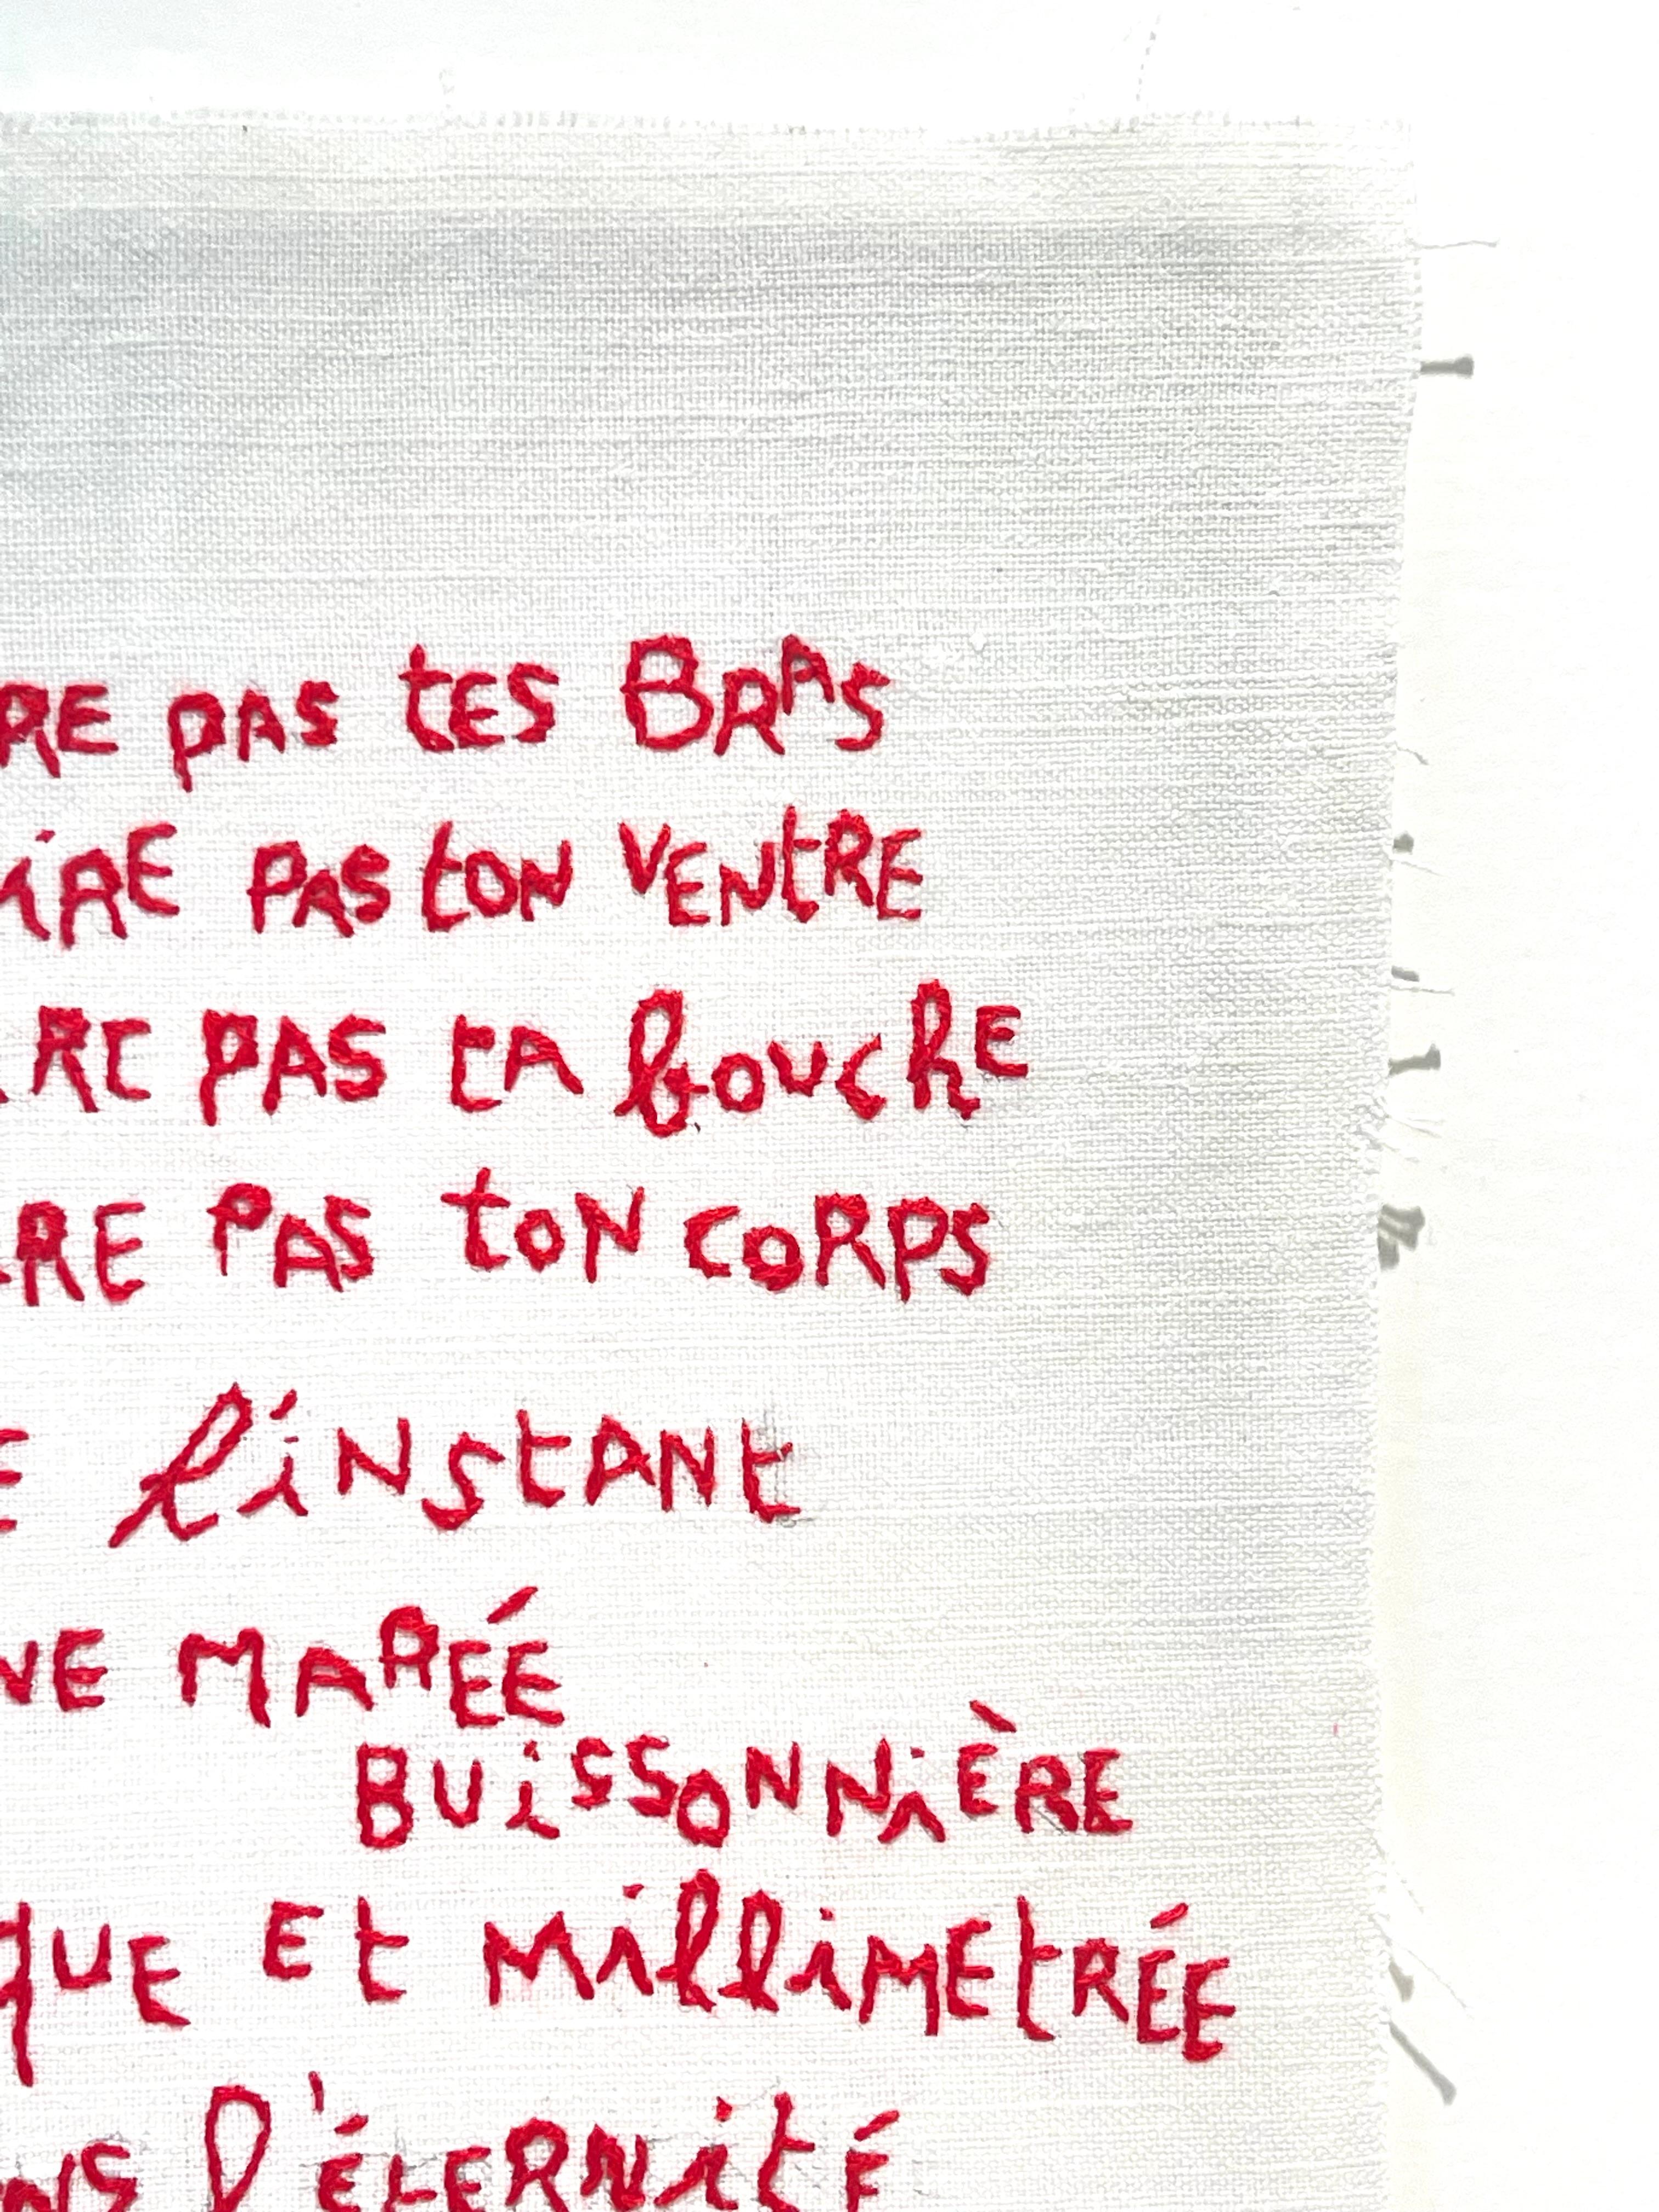 RE PAS tES BRAS
iRE PAS tON VENtRE
RE PAS tA bouchE
RE PAS toN CORPS
E l'iNStANt
NE MARÉE
BUiSSONNiÈRE
qUE Et MilliMEtRÉE
NS l'ÉtERNitÉ